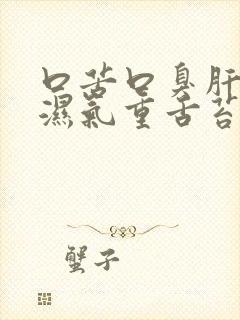 口苦口臭肝
濕氣重舌苔
蟹子